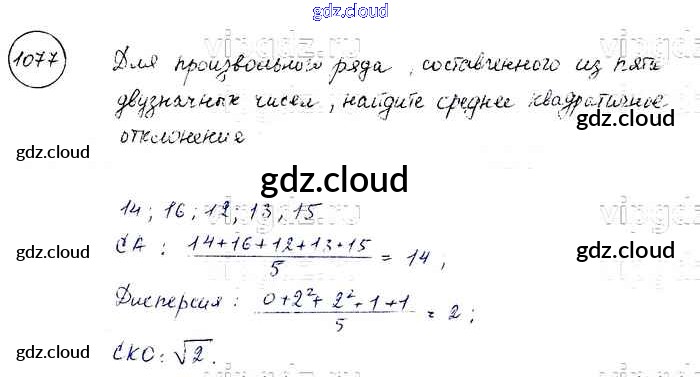 gdz.cloud
1077
Для произвольного ряда, составленного из пяти
двузначных чисел, найдите среднее квадратичное
отклонение
gdz.cloud
gdz.cloud
gdz.cloud
vipgdz.ru
14; 16; 12; 13; 15
СА: (14+16+12+13+15)/5 = 14;
gdz.cloud
gdz.cloud
Дисперсия: (0+2²+2²+1+1)/5 = 2;
СКО: √2.
gdz.cloud
gdz.cloud